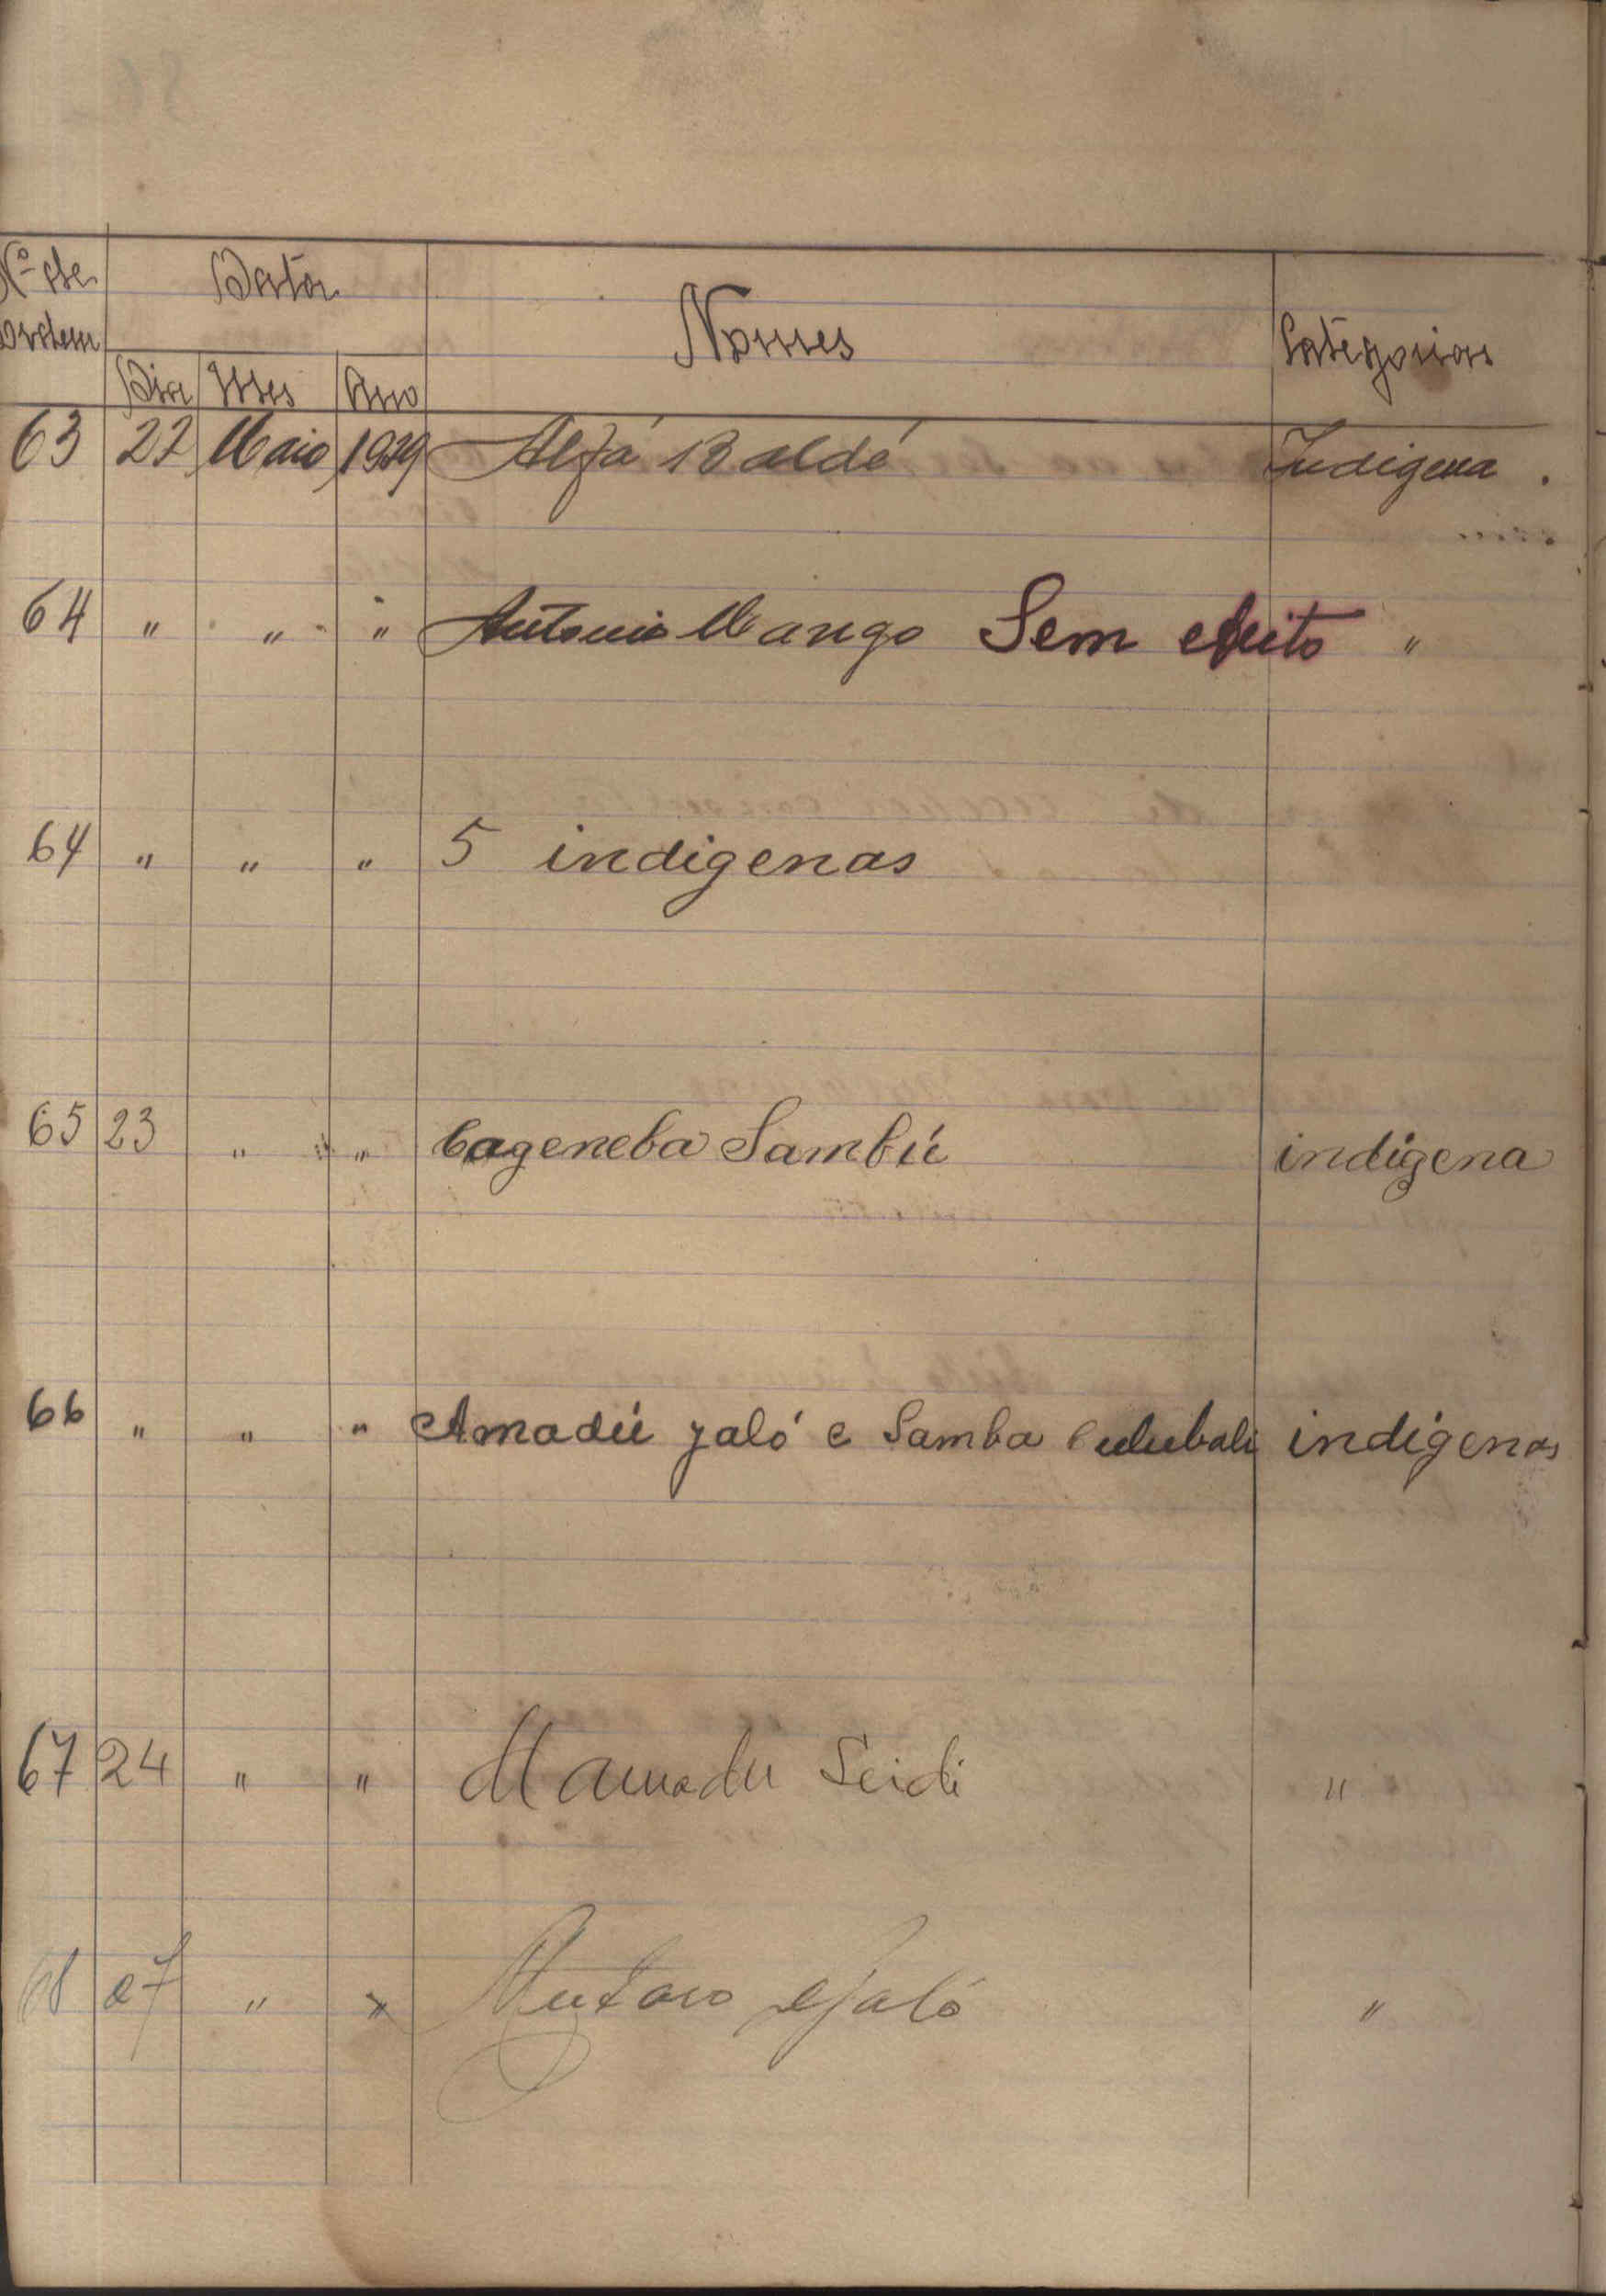 Nº de Data Nomes Categorias
Ordem
Dia Mes Ano
63 22 Maio 1929 Alfá Baldé Indigena
64 " " " Antonio Mango Sem efeito "
64 " " " 5 indigenas
65 23 " " Cageneba Sambú indigena
66 " " " Amadú jaló e Samba Culubali indigenas
67 24 " " Mamadu Seidi "
68 27 " " djaló "